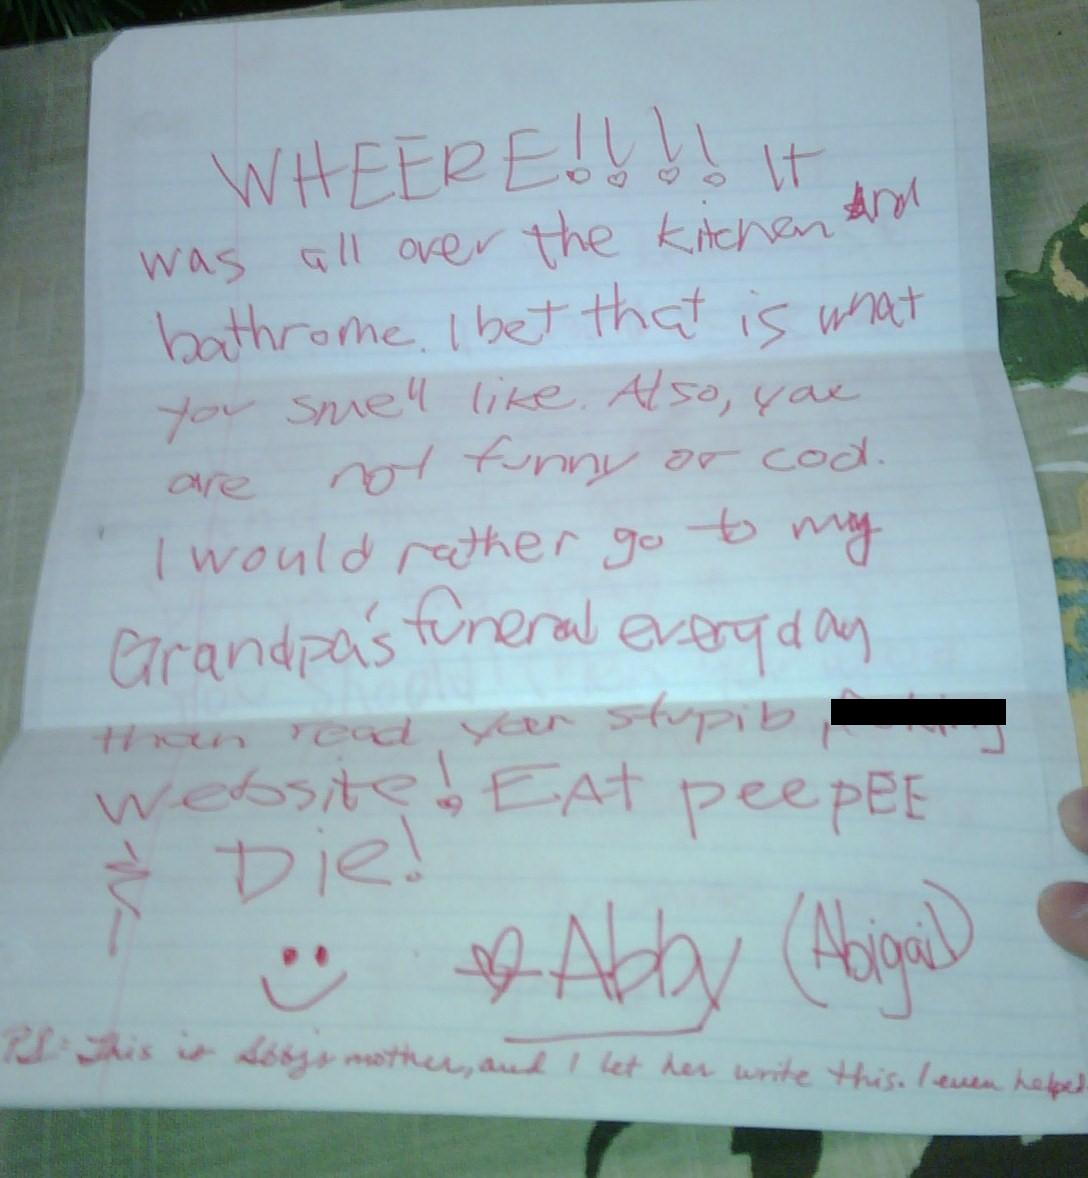 WHEERE!!!! It
was all over the kitchen And
bathrome. I bet that is what
you smell like. Also, you
are not funny or cool.
I would rather go to my
Grandpa's funeral everyday
than read your stupib
website! EAt peepEE
& Die!
Abby (Abigail)
PS: This is Abby's mother, and I let her write this. I even helped